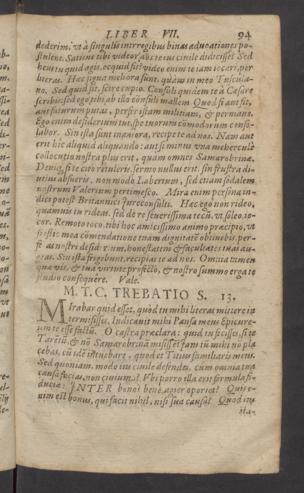 LIBER VII. 94
dederim, vt à singulis in regibus binas aduocationes po-
stulent. Satin' ne tibi videor abs te ius ciuile didicisse? Sed
heus tu quid agis? ecquid fit? video enim te iam iocari per
litteras. Hæc signa meliora sunt, quàm in meo Tuscula-
no. Sed quid sit, scire cupio. Consuli quidem te à Cæsare
scribis: sed ego tibi ab illo consuli mallem. Quod si aut fit,
aut futurum putas, perfer istam militiam, & permane.
Ego enim desiderium tui, spe tuorum commodorum conso-
labor. Sin ista sunt inaniora, recipe te ad nos. Nam aut
erit hîc aliquid aliquando: aut si minus, vna mehercule
collocutio nostra pluris erit, quàm omnes Samarobrinæ.
Deniq; si te cito retuleris, sermo nullus erit. sin frustra di-
utius abfueris, non modo Laberium, sed etiam sodalem
nostrum Valerium pertimesco. Mira enim persona in-
duci potest Britannici Iureconsulti. Hæc ego non rideo,
quamuis tu rideas. sed de re seuerissima tecũ, vt soleo, io-
cor. Remoto ioco, tibi hoc amicissimo animo præcipio, vt
si istîc mea commendatione tuam dignitatẽ obtinebis, per-
feras nostri desiderium, honestatem & facultates tuas au-
geas. Sin ista frigebunt, recipias te ad nos. Omnia tamen
quæ vis, & tua virtute profectò, & nostro summo erga te
studio consequêre. Vale.
M. T. C. TREBATIO S. 13.
Mirabar quid esset, quod tu mihi literas mittere in-
termisisses. Indicauit mihi Pansa meus Epicure-
um te esse factũ. O castra præclara: quid tu fecisses, si te
Tarẽtũ, & nõ Samarobrinã misissem? iam tũ mihi nõ pla-
cebas, cũ idẽ intuebare, quod et Titius familiaris meus.
Sed quonam modo ius ciuile defendes, cum omnia tua
causa facias, non ciuium? Vbi porrò illa erit formula fi-
duciæ: INTER bonos bene agier oportet? Quis e-
nim est bonus, qui facit nihil, nisi sua causa? Quod ius
sta-